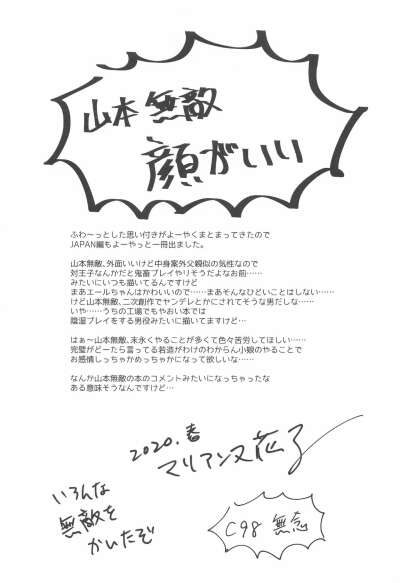 山本無敵
顔がいい
ふわ〜っとした思い付きがよーやくまとまってきたので
JAPAN編もよーやっと一冊出ました。
山本無敵、外面いいけど中身案外父親似の気性なので
対王子なんだと鬼畜プレイやりそうだよなお前……
みたいにいつも描いてるんですけど
まあエールちゃんはかわいいので……まあそんなひどいことはしない……
けど山本無敵、二次創作でヤンデレとかにされてそうな男だしな……
いや……うちの工場でもやおい本では
陰湿プレイをする男役みたいに描いてますけど…
はぁ〜山本無敵、末永くやることが多くて色々苦労してほしい……
完璧がどーたら言ってる若造がわけのわからん小娘のやることで
お感情しっちゃかめっちゃかになって欲しいな……
なんか山本無敵の本のコメントみたいになっちゃったな
ある意味そうなんですけど…
2020.春
マリアンヌ花子
いろんな
無敵を
かいたぞ
C98 無念